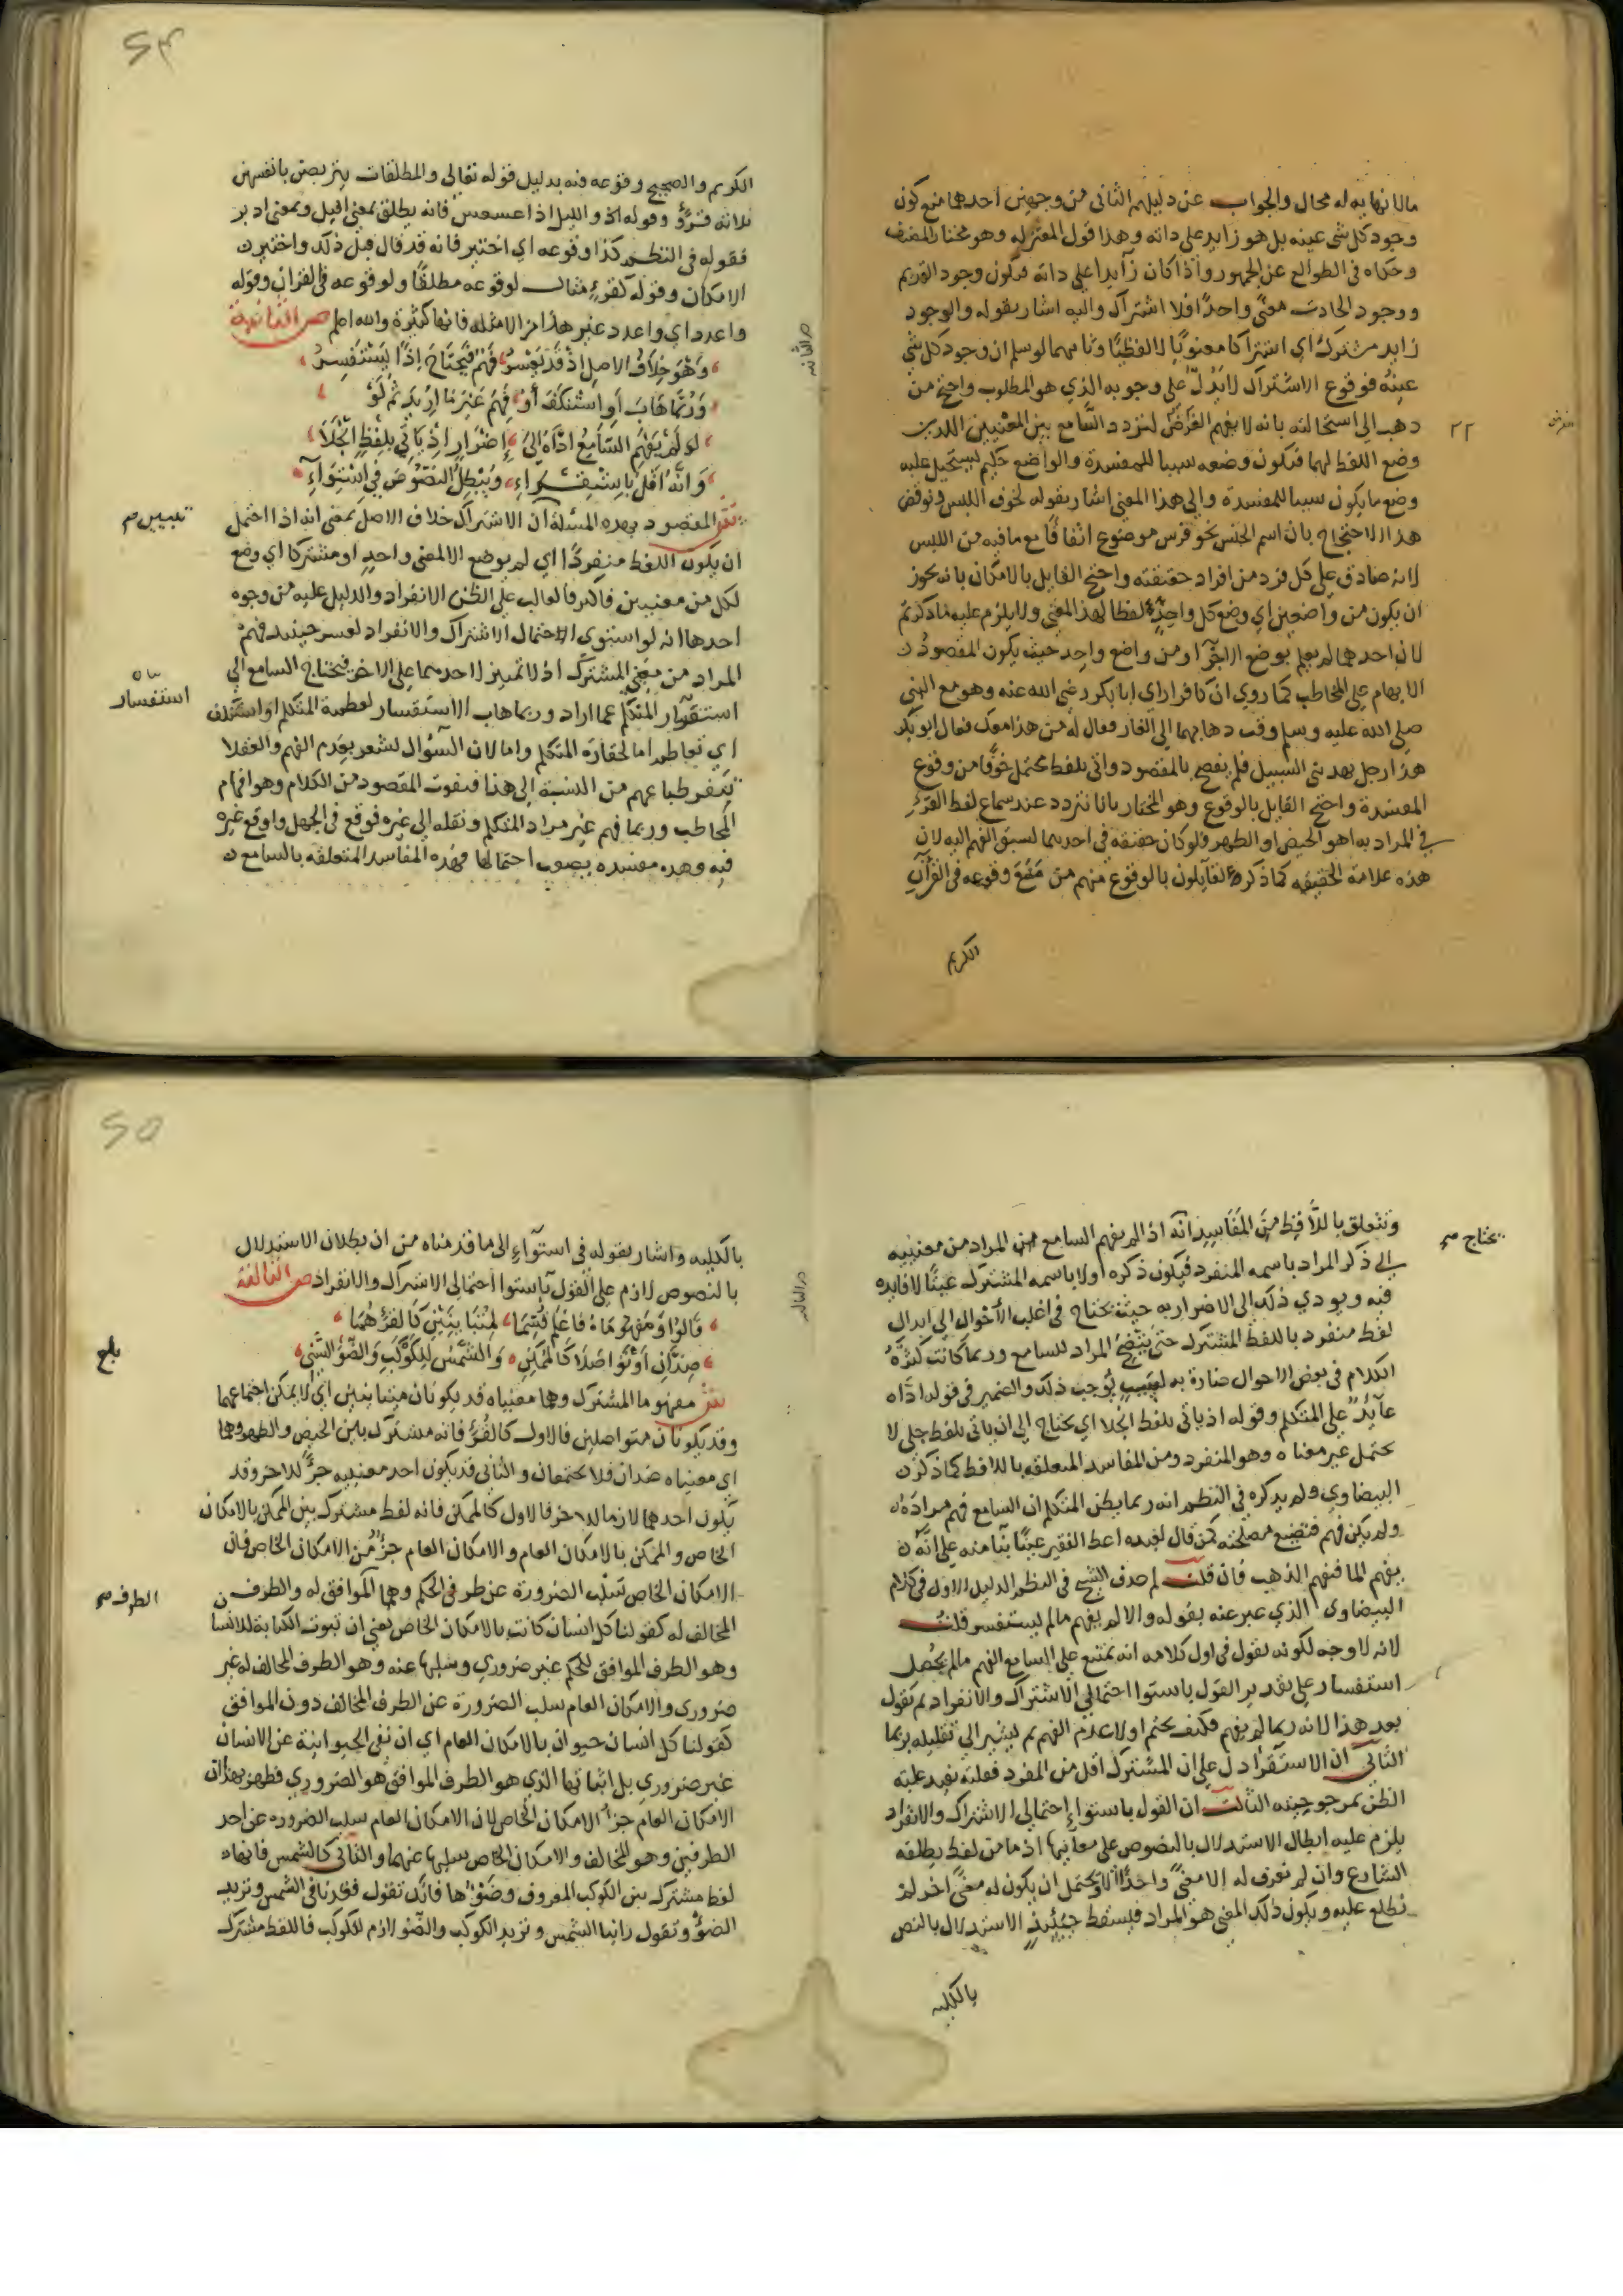 مالا نهاية له محال والجواب عن دليلهم الثاني من وجهين احدهما منع كون
وجود كل شي عينه بل هو زايد على ذاته وهذا قول المعتزله وهو مختار المصنف
وحكاه في الطوالع عن الجمهور واذا كان زايدا على ذاته فيكون وجود القديم
ووجود الحادث معنى واحدا فلا اشتراك واليه اشار بقوله والوجود
زايد مشترك اي اشتراكا معنويا لا لفظيا وثانيهما لو سلم ان وجود كل شي
عينه فوقوع الاشتراك لا يدل على وجوبه الذي هو المطلوب واحتج من
ذهب الى استحالته بانه لا يفهم الغرض لتردد السامع بين المعنيين اللذين
وضع اللفظ لهما فيكون وضعه سببا للمفسدة والواضع حكيم يستحيل عليه
وضع ما يكون سببا للمفسدة والى هذا المعنى اشار بقوله لخوف اللبس ونوقض
هذا الاحتجاج بان اسم الجنس نحو فرس موضوع اتفاقا مع ما فيه من اللبس
لانه صادق على كل فرد من افراد حقيقته واحتج القايل بالامكان بانه يجوز
ان يكون من واضعين اي وضع كل واحد لفظا لهذا المعنى ولا يلزم عليه ما ذكرتم
لان احدهما لم يعلم بوضع الاخر او من واضع واحد حيث يكون المقصود
الابهام على المخاطب كما روي ان كافرا راي ابا بكر رضي الله عنه وهو مع النبي
صلى الله عليه وسلم وقت ذهابهما الى الغار فقال له من هذا معك فقال ابو بكر
هذا رجل يهديني السبيل فلم يفصح بالمقصود واتى بلفظ محتمل خوفا من وقوع
المفسدة واحتج القايل بالوقوع وهو المختار بانا نتردد عند سماع لفظ القرء
في المراد به اهو الحيض او الطهر فلو كان حقيقة في احدهما لسبق الفهم اليه لان
هذه علامة الحقيقة كما ذكره القايلون بالوقوع منهم من منع وقوعه في القران
الكريم
الكريم والصحيح وقوعه فيه بدليل قوله تعالى والمطلقات يتربصن بانفسهن
ثلاثة قروء وقوله والليل اذا عسعس فانه يطلق بمعنى اقبل وبمعنى ادبر
فقوله في النظم كذا وقوعه اي اختير فانه قد قال قبل ذلك واختير
الامكان وقوله كقرء مثال لوقوعه مطلقا ولوقوعه في القران وقوله
واعدد اي واعدد غير هذا من الامثله فانها كثيرة والله اعلم ص الثانية
وهو خلاف الاصل اذ قد يعسر فهم فيحتاج اذا يستفسر
وربما هاب او استنكف او فهم غير ما اريد ثم لو
لو لم يفهم السامع اداه الى اضرار اذ ياتي بلفظ انجلا
وانه اقل باستقراء ويبطل النصوص في استواء
ش المقصود بهذه المسئلة ان الاشتراك خلاف الاصل بمعنى انه اذا احتمل
ان يكون اللفظ منفردا اي لم يوضع الا لمعنى واحد او مشتركا اي وضع
لكل من معنيين فاكثر فالغالب على الظن الانفراد والدليل عليه من وجوه
احدها انه لو استوى احتمال الاشتراك والانفراد لعسر حينئذ فهم
المراد من معنى المشترك اذ لا تمييز لاحدهما على الاخر فيحتاج السامع الى
استفسار المتكلم عما اراد وربما هاب الاستفسار لعظمة المتكلم او استنكف
اي تعاظم اما لحقارة المتكلم واما لان السؤال يشعر بعدم الفهم والعقلا
تنفر طباعهم من النسبة الى هذا فيفوت المقصود من الكلام وهو افهام
المخاطب وربما فهم غير مراد المتكلم ونقله الى غيره فوقع في الجهل واوقع غيره
فيه وهذه مفسده يصوب احتمالها فهذه المفاسد المتعلقة بالسامع
استفسار
وتتعلق باللافظ من المفاسد انه اذا لم يفهم السامع من المراد من معنييه
يحتاج صح
الى ذكر المراد باسمه المنفرد فيكون ذكره اولا باسمه المشترك عبثا لا فايده
فيه ويودي ذلك الى الاضرار به حيث يحتاج في اغلب الاحوال الى ابدال
لفظ منفرد باللفظ المشترك حتى يتضح المراد للسامع وربما كانت كثرة
الكلام في بعض الاحوال ضارة به لسبب يوجب ذلك والضمير في قوله اداه
عائد على المتكلم وقوله اذ ياتي بلفظ انجلا اي يحتاج الى ان ياتي بلفظ جلي لا
يحتمل غير معناه وهو المنفرد ومن المفاسد المتعلقه باللافظ كما ذكره
البيضاوي ولم يذكره في النظم انه ربما يظن المتكلم ان السامع فهم مراده
ولم يكن فهم فتضيع مصلحته كمن قال لعبده اعط الفقير عينا بنا منه على انه
يفهم الما فيفهم الذهب فان قلت لم حذف الشيخ في النظم الدليل الاول في كلام
البيضاوى الذي عبر عنه بقوله والا لم يفهم مالم يستفسر قلت
لانه لا وجه لكونه يقول في اول كلامه انه يمتنع على السامع الفهم مالم يحصل
استفسار على تقدير القول باستوا احتمالي الاشتراك والانفراد ثم يقول
بعد هذا لانه ربما لم يفهم فكيف يحتم اولا عدم الفهم ثم يشير الى تقليله بربما
الثاني ان الاستقرا دل على ان المشترك اقل من المفرد فغلبته تفيد غلبة
الظن بمرجوحيته الثالث ان القول باستواء احتمالي الاشتراك والانفراد
يلزم عليه ابطال الاستدلال بالنصوص على معانيها اذ ما من لفظ يطلقه
الشارع وان لم نعرف له الا معنى واحدا الا ويحتمل ان يكون له معنى اخر لم
نطلع عليه ويكون ذلك المعنى هو المراد فيسقط حينئذ الاستدلال بالنص
بالكليه
بالكليه واشار بقوله في استواء الى ما قدمناه من ان بطلان الاستدلال
بالنصوص لازم على القول باستوا احتمالي الاشتراك والانفراد ص الثالثة
صدان او تواصلا كالممكن والشمس للكوكب والضوء السني
بلغ
ش مفهوما المشترك وهما معنياه قد يكونان متباينين اي لا يمكن اجتماعهما
وقد يكونان متواصلين فالاول كالقرء فانه مشترك بين الحيض والطهر وهما
اي معنياه ضدان فلا يجتمعان والثاني قد يكون احد معنييه جزء للاخر وقد
يكون احدهما لازما للاخر فالاول كالممكن فانه لفظ مشترك بين الممكن بالامكان
الخاص والممكن بالامكان العام والامكان العام جزء من الامكان الخاص فان
الامكان الخاص سلب الضرورة عن طرفي الحكم وهما الموافق له والطرف
الطرف صح
المخالف له كقولنا كل انسان كاتب بالامكان الخاص يعني ان ثبوت الكتابة للانسان
وهو الطرف الموافق للحكم غير ضروري وسلبها عنه وهو الطرف المخالف له غير
ضروري والامكان العام سلب الضرورة عن الطرف المخالف دون الموافق
كقولنا كل انسان حيوان بالامكان العام اي ان نفي الحيوانية عن الانسان
غير ضروري بل اثباتها الذي هو الطرف الموافق هو الضروري فظهر بهذا ان
الامكان العام جزء الامكان الخاص لان الامكان العام سلب الضروره عن احد
الطرفين وهو المخالف والامكان الخاص سلبها عنهما والثاني كالشمس فانها
لفظ مشترك بين الكوكب المعروف وضوئها فانك تقول قعدنا في الشمس وتريد
الضوء وتقول راينا الشمس وتريد الكوكب والضوء لازم للكوكب فاللفظ مشترك